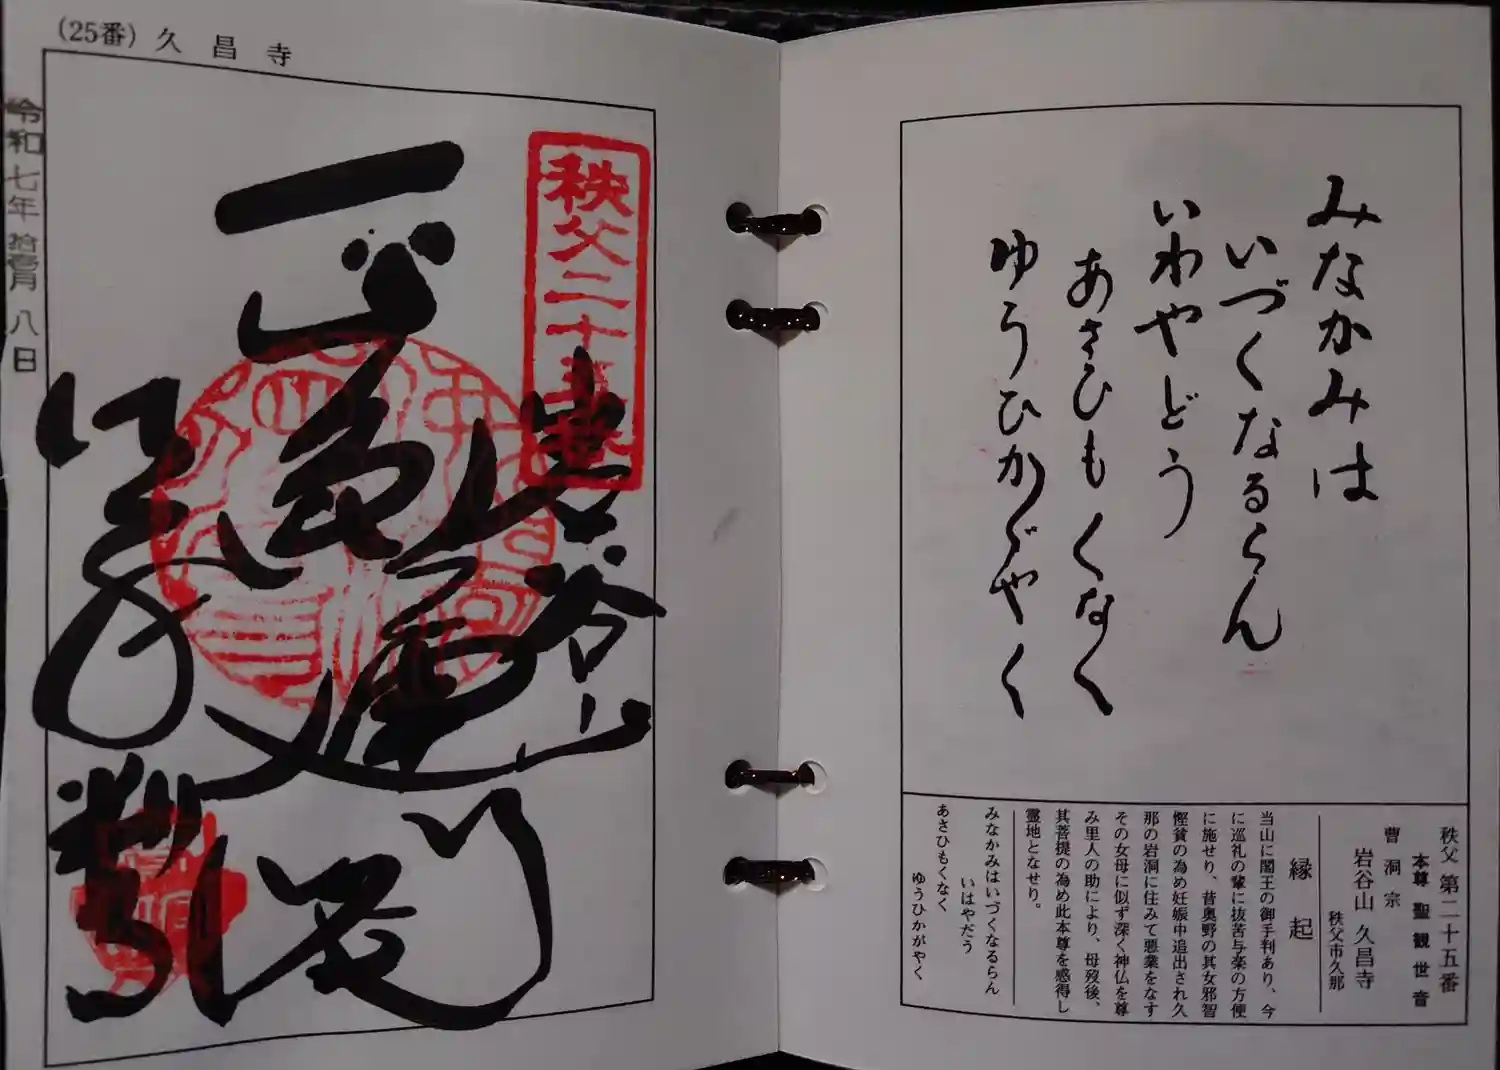 (25番) 久昌寺
令和七年拾壱月八日
秩父二十五番
岩谷山
久昌寺
みなかみは
いづくなるらん
いわやどう
あさひもくなく
ゆうひかゞやく
秩父 第二十五番
本尊 聖観世音
曹洞宗
岩谷山 久昌寺
秩父市久那
縁起
当山に閻王の御手判あり、今
に巡礼の輩に抜苦与楽の方便
に施せり、昔奥野の其女邪智
慳貧の為め妊娠中追出され久
那の岩洞に住みて悪業をなす
その女母に似ず深く神仏を尊
み里人の助により、母歿後、
其菩提の為め此本尊を感得し
霊地となせり。
みなかみはいづくなるらん
いはやだう
あさひもくなく
ゆうひかがやく